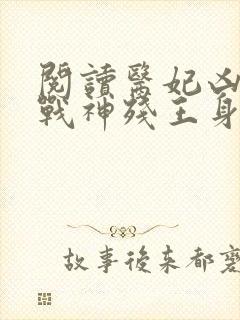 閱讀醫妃凶
戰神殘王身
故事後來都